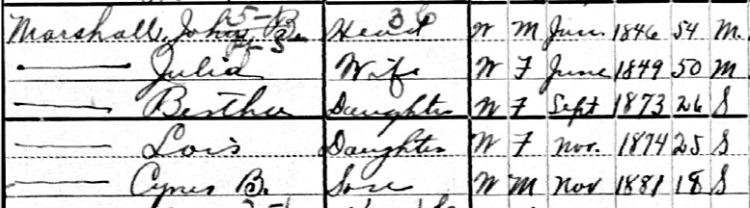 Marshall, John B. Head W M Jan. 1846 54 M.
—— Julia Wife W F June 1849 50 M
—— Bertha Daughter W F Sept 1873 26 S
—— Lois Daughter W F Nov. 1874 25 S
—— Cyrus B. Son W M Nov 1881 18 S